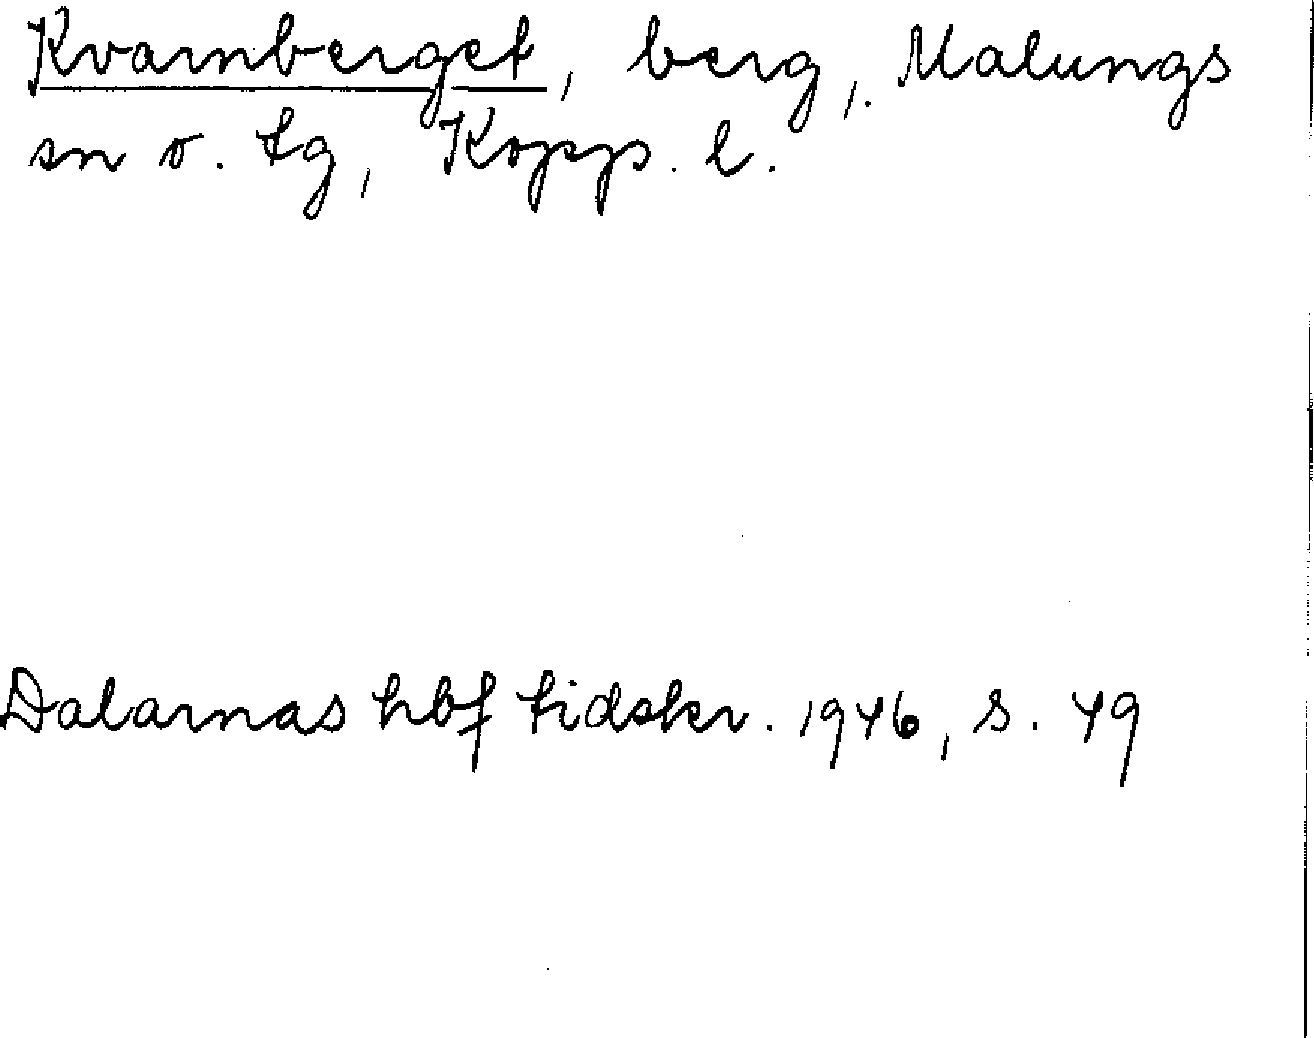 Kvarnberget, berg, Malungs
sn o. tg, Kopp. l.
Dalarnas hbf tidskr. 1946, s. 49